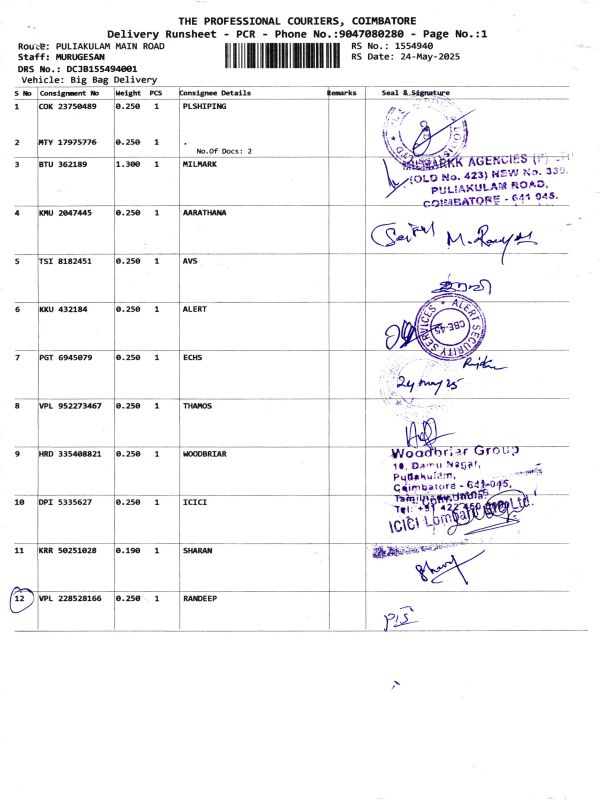 THE PROFESSIONAL COURIERS, COIMBATORE
Delivery Runsheet - PCR - Phone No.:9047080280 - Page No.:1
Route: PULIAKULAM MAIN ROAD RS No.: 1554940
Staff: MURUGESAN RS Date: 24-May-2025
DRS No.: DCJB155494001
Vehicle: Big Bag Delivery
S No Consignment No Weight PCS Consignee Details Remarks Seal & Signature
1 COK 23750489 0.250 1 PLSHIPING
2 MTY 17975776 0.250 1 .
No.Of Docs: 2
3 BTU 362189 1.300 1 MILMARK
MILMARKK AGENCIES (P)
(OLD No. 423) NEW No. 339.
PULIAKULAM ROAD,
COIMBATORE - 641 045.
4 KMU 2047445 0.250 1 AARATHANA
5 TSI 8182451 0.250 1 AVS
6 KKU 432184 0.250 1 ALERT
ALERT SECURITY SERVICES
CBE-45
7 PGT 6945079 0.250 1 ECHS
24 may 25
8 VPL 952273467 0.250 1 THAMOS
9 HRD 335408821 0.250 1 WOODBRIAR
Woodbriar Group
10, Damu Nagar,
Puliakulam,
Coimbatore - 641-045,
10 DPI 5335627 0.250 1 ICICI
ICICI Lombard Ltd.
11 KRR 50251028 0.190 1 SHARAN
12 VPL 228528166 0.250 1 RANDEEP